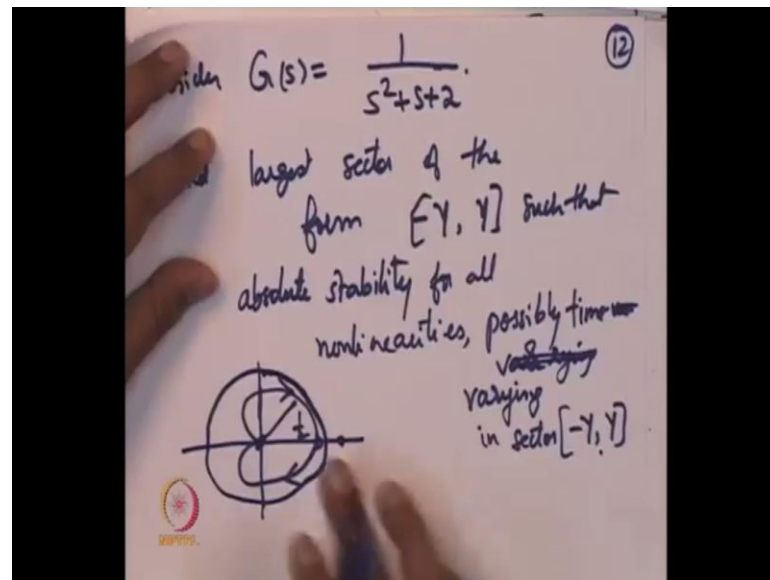 G(s) = 1 / (s²+s+2) .
12
largest sector of the
form [-γ, γ] such that
absolute stability for all
nonlinearities, possibly time
varying
in sector [-γ, γ]
1/2
NPTEL